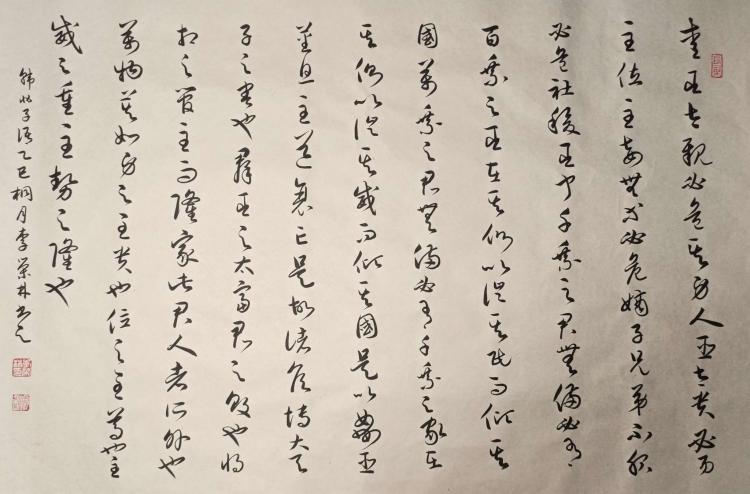 愛臣太親必危其身人臣太貴必易
主位主妾無等必危嫡子兄弟不服
必危社稷臣聞千乘之君無備必有
百乘之臣在其側以徙其民而傾其
國萬乘之君無備必有千乘之家在
其側以徙其威而傾其國是以姦臣
蕃息主道衰亡是故諸侯博大天
子之害也群臣之太富君之敗也將
相之管主而隆家此君人者所外也
萬物莫如身之至貴也位之至尊也主
威之重主勢之隆也
韓非子語乙巳桐月李榮林書之